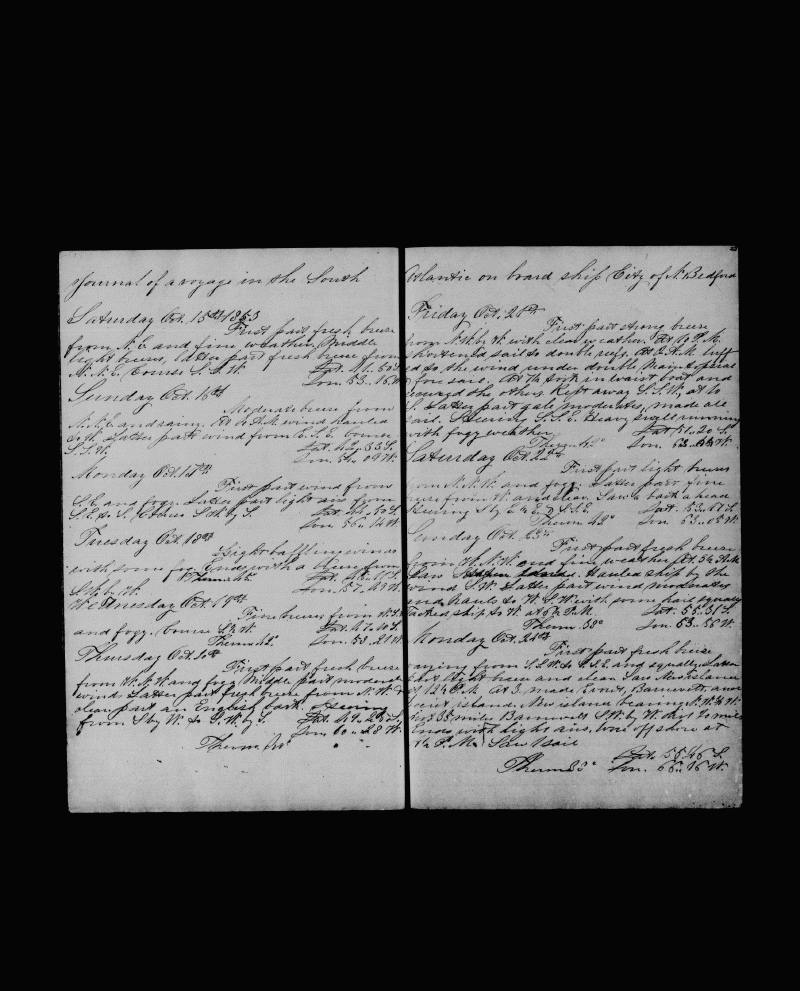 Journal of a voyage in the South
Saturday Oct. 15th 1853
First part fresh breeze
from N.E. and fine weather, Middle
light breeze, latter part fresh breeze from
N.N.E. Course S.S.W. Lat. 41.. 50 S.
Lon. 53.. 16 W.
Sunday Oct. 16th
Moderate breeze from
N.N.E. and rainy. At wind hauled
Latter part wind from E.S.E. Course
S.S.W. Lat. 42.. 53 S.
Lon. 54.. 09 W.
Monday Oct. 17th
First part wind from
S.E. and foggy. Latter part light airs from
S.E. to S. Course S.W. by S. Lat. 44.. 50 S.
Lon. 56.. 14 W.
Tuesday Oct. 18th
Light baffling winds
with some fog. Ends with a breeze from
Therm. Lat.
S.W. by W. Lon. 57.. 49 W.
Wednesday Oct. 19th
Fine breeze from
and foggy. Course S. W. Lat. 47.. 10 S.
Therm. 42° Lon. 58.. 21 W.
Thursday Oct. 20th
First part fresh breeze
from W.N.W. and fog. Middle part moderate
wind. Latter part fresh breeze from N.W. &
clear, past an English bark. Steering
from S. by W. to S.W. by S. Lat. 49.. 25 S.
Lon. 60.. 28 W.
Therm.
Atlantic on board ship City of N. Bedford
Friday Oct. 21st
First part strong breeze
from with clear weather. At 10 P.M.
shortened sail to double reefs. At A.M. luff
ed to the wind under double Main topsail
& fore sail. At took in waist boat and
secured the others. Kept away S.S.W. at
Latter part gale moderates, made all
sail. Steering S.S.E. Heavy swell running
with foggy weather. Lat. 51.. 20 S.
Therm. 42° Lon. 63.. W.
Saturday Oct. 22nd
First part light breeze
from N.N.W. and fog. Latter part fine
breeze from W. and clear. Saw a bark ahead
steering S. by E. & S.S.E. Lat. 53.. S.
Therm. 42° Lon. 63.. 05 W.
Sunday Oct. 23rd
First part fresh breeze
from W.N.W. and fine weather. At 5½ A.M.
Saw land. Hauled ship by the
wind S.W. Latter part wind moderates
and hauls to W.S.W. with some hail squalls
Tacked ship to W. at P.M. Lat. 55.. 31 S.
Therm. 38° Lon. 63.. 55 W.
Monday Oct. 24th
First part fresh breeze
varying from S.S.W. to and squally. Latter
part light breeze and clear. Saw New island
at A.M. At 3. made Evout, Barnevelt, and
island. New island bearing N.W.
35 miles Barnevelt S.W. by W. dist. 20 miles
Ends with light airs, wore off shore at
P.M. Saw 1 sail
Lat. 55.. 46 S.
Therm. 38° Lon. 66.. 16 W.